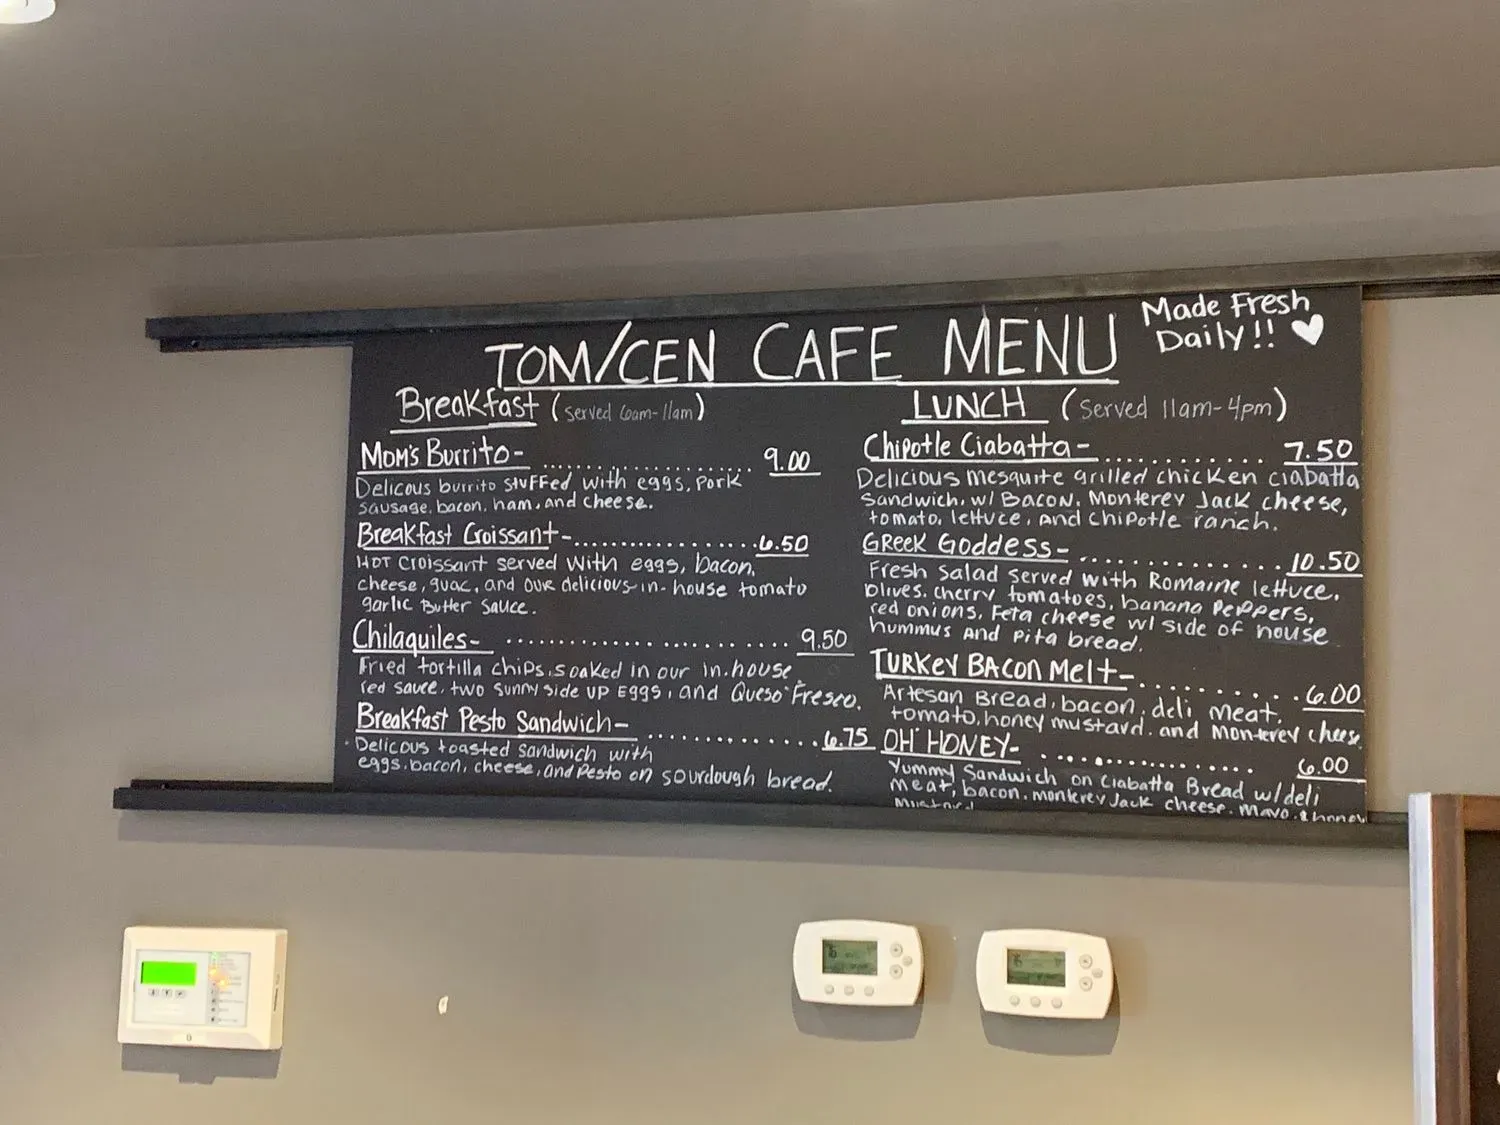 Made Fresh
Daily!!
TOM/CEN CAFE MENU
Breakfast (served 6am-11am)
Mom's Burrito- 9.00
Delicous burrito stuffed with eggs, pork
sausage, bacon, ham, and cheese.
Breakfast Croissant- 6.50
Hot croissant served with eggs, bacon,
cheese, guac, and our delicious in-house tomato
garlic butter sauce.
Chilaquiles- 9.50
Fried tortilla chips, soaked in our in-house
red sauce, two sunny side up eggs, and Queso Fresco.
Breakfast Pesto Sandwich- 6.75
Delicous toasted sandwich with
eggs, bacon, cheese, and Pesto on sourdough bread.
LUNCH (served 11am-4pm)
Chipotle Ciabatta- 7.50
Delicious mesquite grilled chicken ciabatta
sandwich, w/ Bacon, Monterey Jack cheese,
tomato, lettuce, and chipotle ranch.
Greek Goddess- 10.50
Fresh salad served with Romaine lettuce,
olives, cherry tomatoes, banana peppers,
red onions, Feta cheese w/ side of house
hummus and pita bread.
Turkey Bacon Melt- 6.00
Artesan Bread, bacon, deli meat,
tomato, honey mustard, and Monterey cheese.
OH' HONEY- 6.00
Yummy Sandwich on Ciabatta Bread w/ deli
meat, bacon, monterey Jack cheese, mayo, & honey
mustard